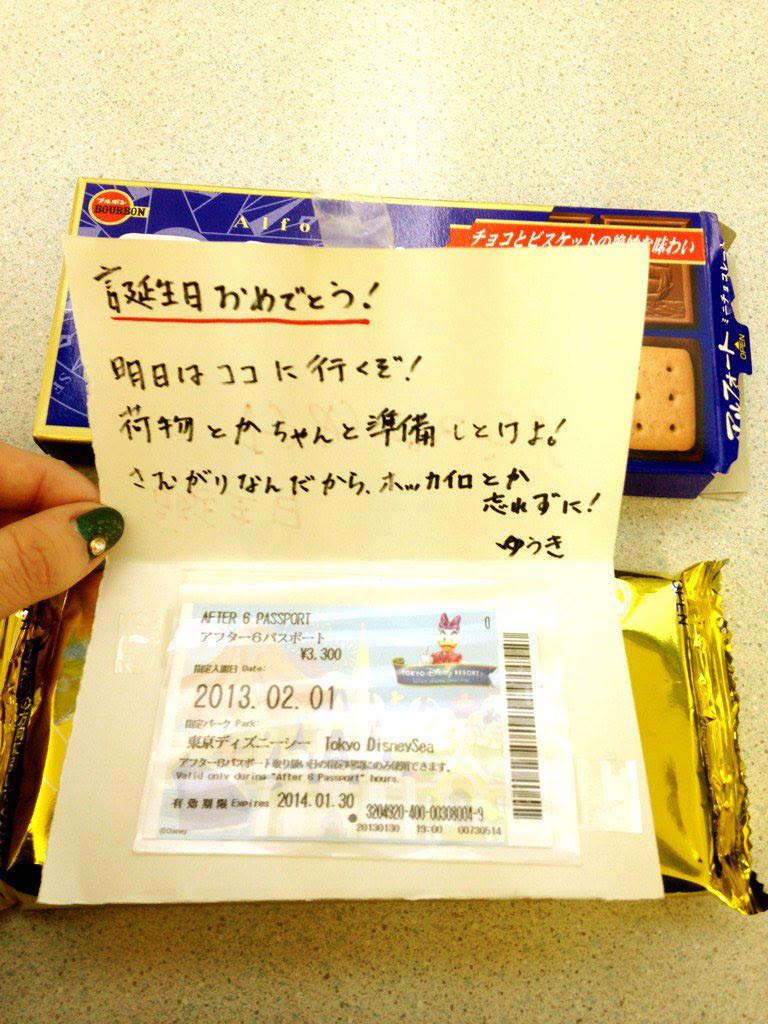 ブルボン
BOURBON
Alfo
チョコとビスケットの絶妙な味わい
アルフォート ミニチョコレート
OPEN
誕生日おめでとう!
明日はココに行くぞ!
荷物とかちゃんと準備しとけよ!
さむがりなんだから、ホッカイロとか
忘れずに!
ゆうき
AFTER 6 PASSPORT
アフター6パスポート
¥3,300
0
TOKYO Disney RESORT
指定入園日 Date:
2013.02.01
指定パーク Park:
東京ディズニーシー Tokyo DisneySea
アフター6パスポート取り扱い日の指定時間にのみ使用できます。
Valid only during "After 6 Passport" hours.
有効期限 Expires 2014.01.30
3204920-400-00308004-9
20130130 19:00 00730514
©Disney
OPEN